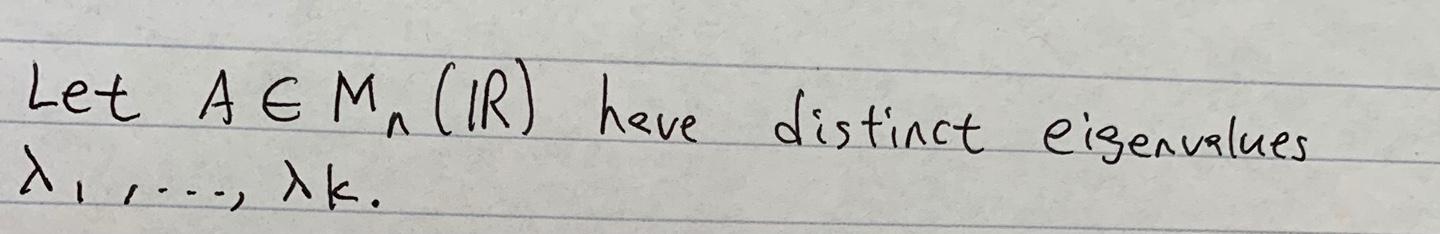 Let A ∈ Mₙ(ℝ) have distinct eigenvalues
λ₁,..., λk.